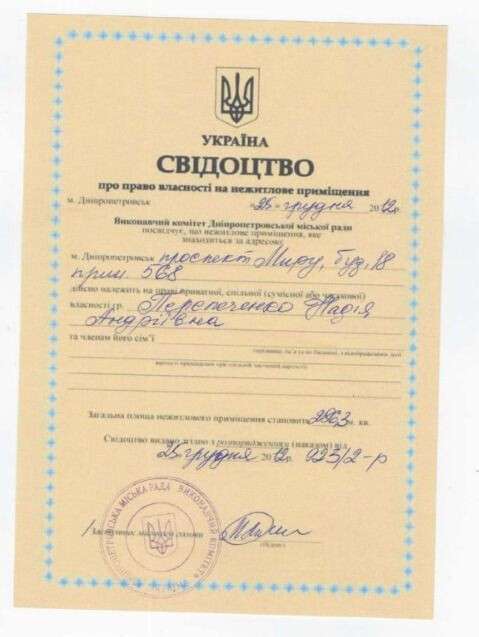 УКРАЇНА
СВІДОЦТВО
про право власності на нежитлове приміщення
м. Дніпропетровськ «25» грудня 2012р.
Виконавчий комітет Дніпропетровської міської ради
посвідчує, що нежитлове приміщення, яке
знаходиться за адресою:
м. Дніпропетровськ проспект Миру, буд. 18
прим. 568
дійсно належить на праві приватної, спільної (сумісної або часткової)
власності гр. Перепеченко Надія
Андріївна
та членам його сім'ї
Загальна площа нежитлового приміщення становить м. кв.
Свідоцтво видано згідно з розпорядження (наказом) від
25 грудня 2012р. 923/2-р
(підпис)
МІСЬКА РАДА ВИКОНАВЧИЙ КОМІТЕТ